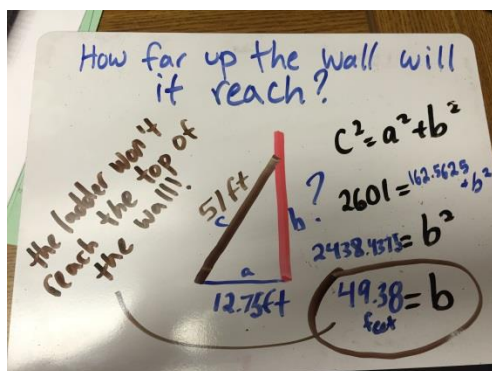 How far up the wall will
it reach?
the ladder won't
reach the top of
the wall!
51ft
c
b
?
a
12.75ft
c²=a²+b²
2601=162.5625+b²
2438.4375=b²
49.38=b
feet